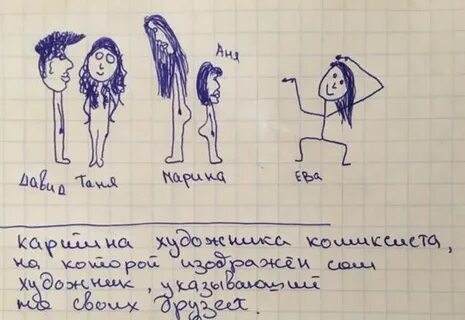 Аня
Давид Таня Марина Ева
картина художника комиксиста,
на которой изображён сам
художник, указывающий
на своих друзей.